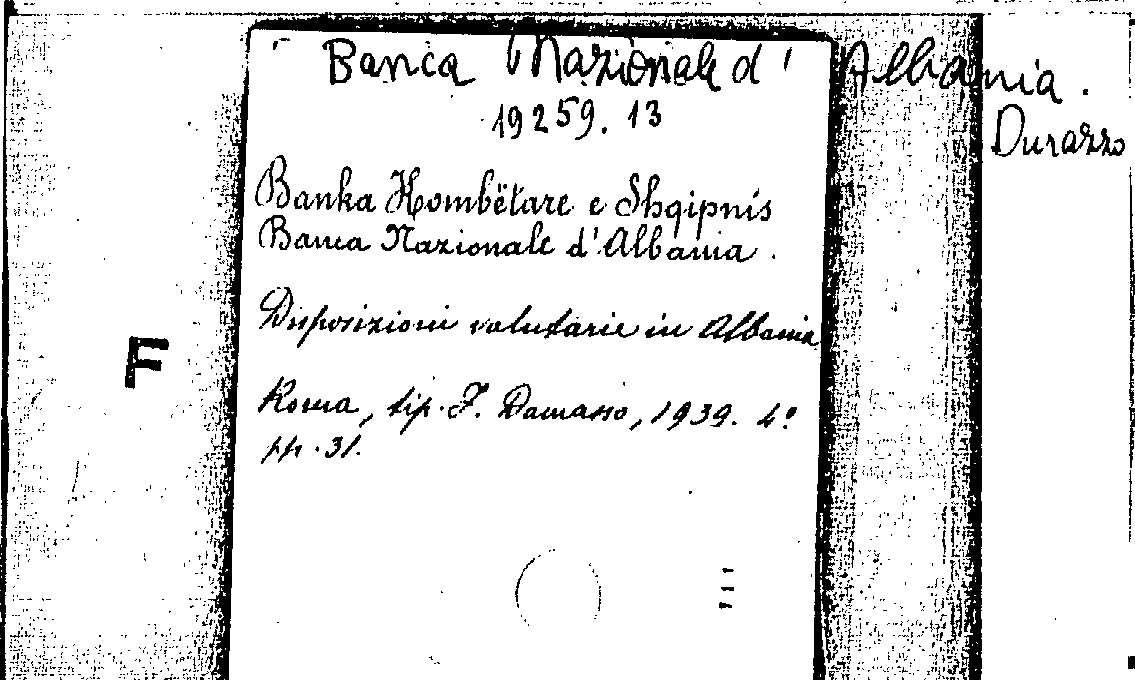 Banca Nazionale d' Albania.
Durazzo
19259. 13
Banka Kombëtare e Shqipnis
Banca Nazionale d'Albania.
Disposizioni valutarie in Albania
Roma, tip. F. Damasso, 1939. 4°
pp. 31.
F